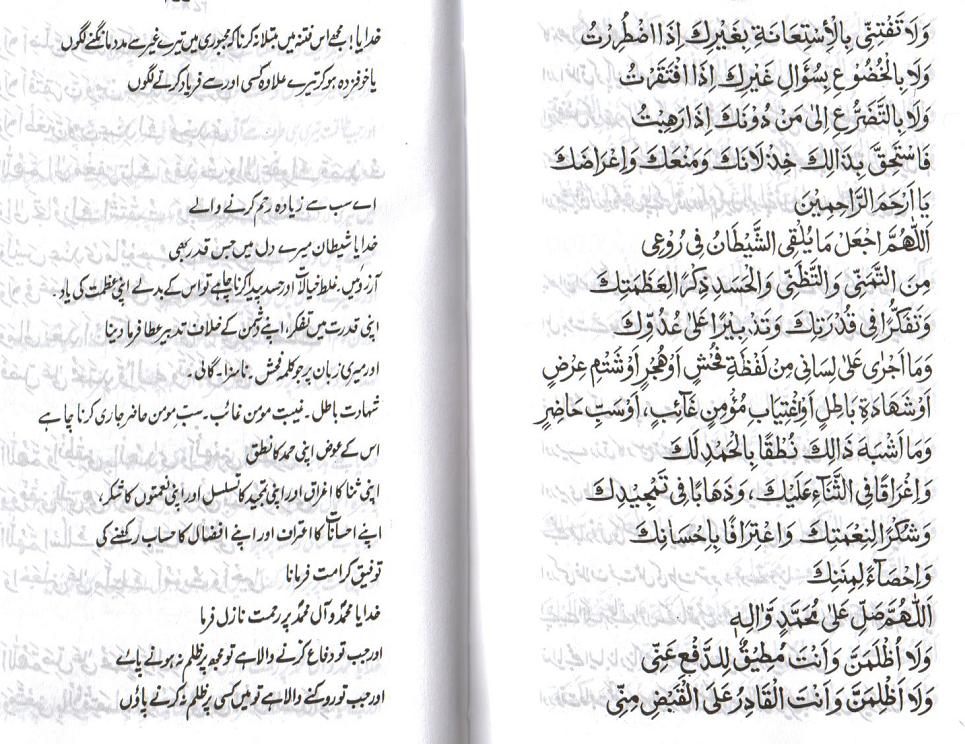 وَلَا تَفْتِنِّي بِالْاِسْتِعَانَةِ بِغَيْرِكَ اِذَا اضْطُرِرْتُ
وَلَا بِالْخُضُوْعِ بِسُؤَالِ غَيْرِكَ اِذَا افْتَقَرْتُ
وَلَا بِالتَّضَرُّعِ اِلٰى مَنْ دُوْنَكَ اِذَا رَهِبْتُ
فَاسْتَحِقَّ بِذَالِكَ خِذْلَانَكَ وَمَنْعَكَ وَاِعْرَاضَكَ
يَا اَرْحَمَ الرَّاحِمِيْنَ
اَللّٰهُمَّ اجْعَلْ مَا يُلْقِى الشَّيْطَانُ فِي رُوْعِي
مِنَ التَّمَنِّي وَالتَّظَنِّي وَالْحَسَدِ ذِكْرًا لِعَظَمَتِكَ
وَتَفَكُّرًا فِي قُدْرَتِكَ وَتَدْبِيْرًا عَلٰى عَدُوِّكَ
وَمَا اَجْرٰى عَلٰى لِسَانِي مِنْ لَفْظَةِ فُحْشٍ اَوْ هُجْرٍ اَوْ شَتْمِ عِرْضٍ
اَوْ شَهَادَةِ بَاطِلٍ اَوِاغْتِيَابِ مُؤْمِنٍ غَائِبٍ، اَوْ سَبِّ حَاضِرٍ
وَمَا اَشْبَهَ ذَالِكَ نُطْقًا بِالْحَمْدِ لَكَ
وَاِغْرَاقًا فِي الثَّنَاءِ عَلَيْكَ، وَذَهَابًا فِي تَمْجِيْدِكَ
وَشُكْرًا لِنِعْمَتِكَ وَاعْتِرَافًا بِاِحْسَانِكَ
وَاِحْصَاءً لِمِنَنِكَ
اَللّٰهُمَّ صَلِّ عَلٰى مُحَمَّدٍ وَّاٰلِهٖ
وَلَا اُظْلَمَنَّ وَاَنْتَ مُطِيْقٌ لِلدَّفْعِ عَنِّي
وَلَا اَظْلِمَنَّ وَاَنْتَ الْقَادِرُ عَلَى الْقَبْضِ مِنِّي
خدایا! مجھے اس فتنہ میں مبتلا نہ کرنا کہ مجبوری میں تیرے غیر سے مدد مانگنے لگوں
یا خوفزدہ ہو کر تیرے علاوہ کسی اور سے فریاد کرنے لگوں
اے سب سے زیادہ رحم کرنے والے
خدایا شیطان میرے دل میں جس قدر بھی
آرزوئیں۔ غلط خیالات اور حسد پیدا کرنا چاہے تو اس کے بدلے اپنی عظمت کی یاد۔
اپنی قدرت میں تفکر، اپنے دشمن کے خلاف تدبیر عطا فرما دینا
اور میری زبان پر جو کلمہ فحش۔ ناسزا۔ گالی۔
شہادت باطل۔ غیبت مومن غائب۔ سبّ مومن حاضر جاری کرنا چاہے
اس کے عوض اپنی حمد کا نطق
اپنی ثنا کا اغراق اور اپنی تمجید کا تسلسل اور اپنی نعمتوں کا شکر،
اپنے احسانات کا اعتراف اور اپنے افضال کا حساب رکھنے کی
توفیق کرامت فرمانا
خدایا محمدؐ و آل محمدؐ پر رحمت نازل فرما
اور جب تو دفاع کرنے والا ہے تو مجھ پر ظلم نہ ہونے پائے
اور جب تو روکنے والا ہے تو میں کسی پر ظلم نہ کرنے پاؤں